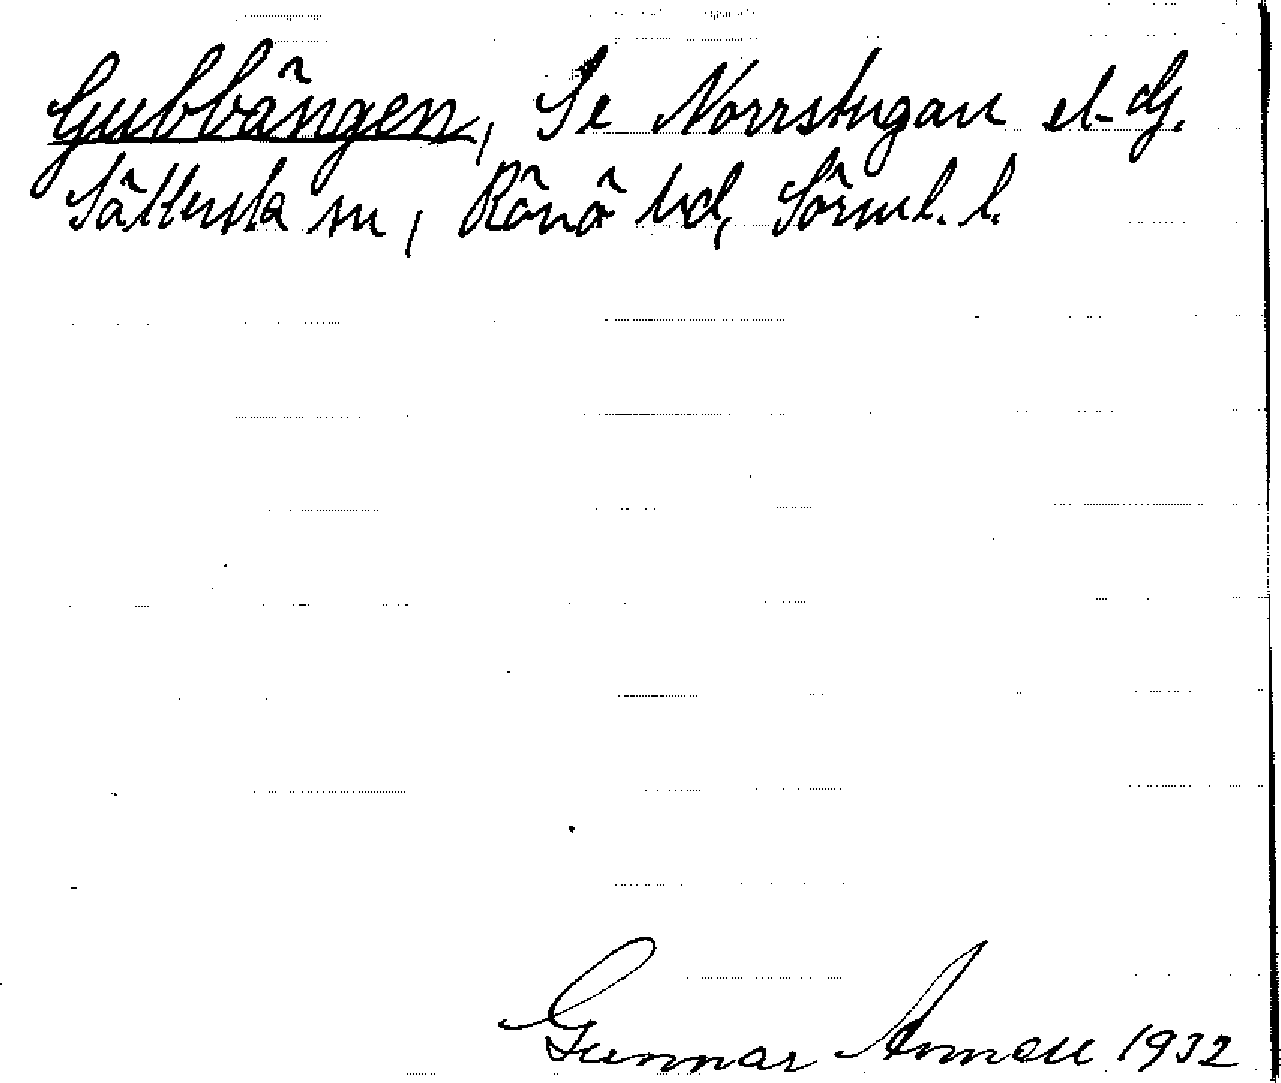 Gubbängen, Se Norrstugan el- dj.
Sättersta sn, Rönö hd, Sörml. l.
Gunnar 1932